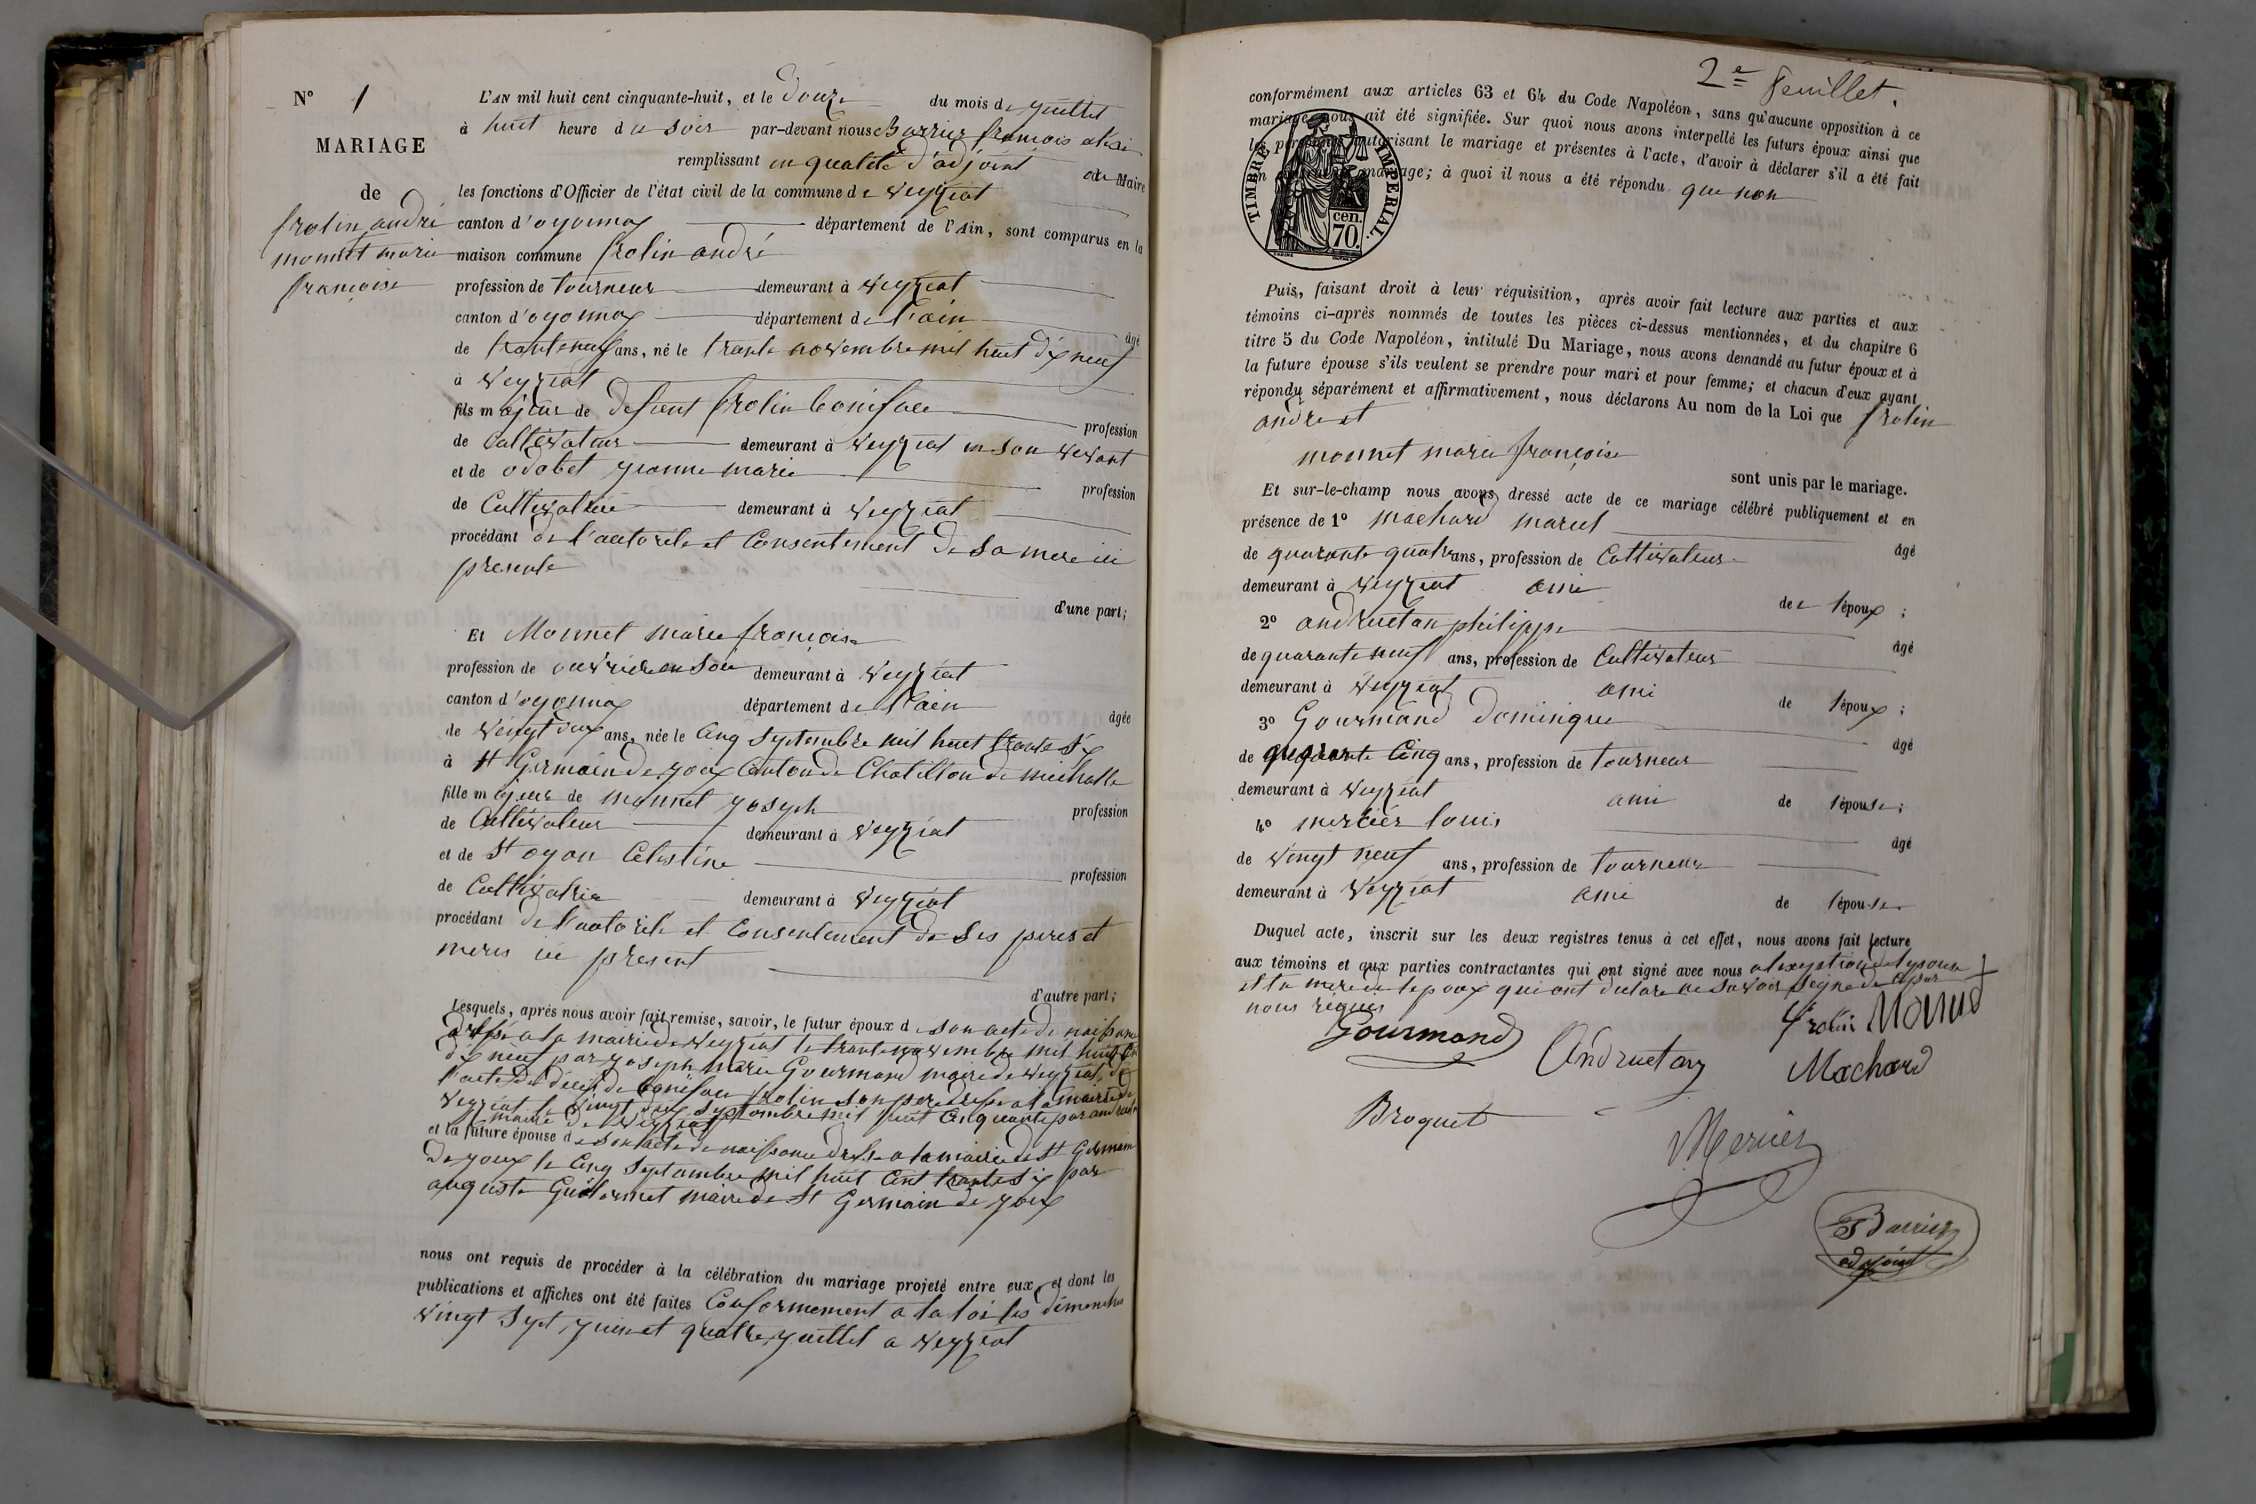 N° 1
MARIAGE
de
frolin andré
monnet marie
françoise
L'AN mil huit cent cinquante-huit, et le douze du mois de juillet
à huit heure du soir par-devant nous Barrier françois
remplissant en qualité d'adjoint au Maire
les fonctions d'Officier de l'état civil de la commune de veyziat
canton d'oyonnax département de l'Ain, sont comparus en la
maison commune frolin andré
profession de tourneur demeurant à veyziat
canton d'oyonnax département de l'ain âgé
de trenteneuf ans, né le trente novembre mil huit dix neuf
à veyziat
fils majeur de defient frolin boniface profession
de Cultivateur demeurant à veyziat en son vivant
et de odobet jeanne marie profession
de Cultivatrice demeurant à veyziat
procédant de l'autorite et Consentement de Sa mere ici
presente
d'une part;
Et Monnet marie françoise
profession de ouvriere en soie demeurant à veyziat
canton d'oyonnax département de l'ain âgée
de vingt deux ans, née le Cinq Septembre mil huit trente Six
à St Germain de joux Canton de Chatillon de michaille
fille majeur de monnet joseph profession
de Cultivateur demeurant à veyziat
et de St oyon Celestine profession
de Cultivatrice demeurant à veyziat
procédant de l'autorite et Consentement de Ses peres et
meres ici present
d'autre part;
Lesquels, après nous avoir fait remise, savoir, le futur époux de son acte de naissance
dressé a la mairie de veyziat le trente novembre mil huit Cent
dix neuf par joseph Marie Gourmand maire de veyziat, de
l'acte de décès de boniface frolin son pere dressé a la mairie de
veyziat le vingt deux Septembre mil huit Cinquante par
maire de veyziat
et la future épouse de Son acte de naissance dressé a la mairie de St Germain
De joux le Cinq Septembre mil huit Cent trente Six par
auguste Guillermet maire de St Germain de joux
nous ont requis de procéder à la célébration du mariage projeté entre eux, et dont les
publications et affiches ont été faites Conformement a la loi les dimanches
vingt Sept, juin et quatre, juillet a veyziat
2e feuillet.
conformément aux articles 63 et 64 du Code Napoléon, sans qu'aucune opposition à ce
mariage nous ait été signifiée. Sur quoi nous avons interpellé les futurs époux ainsi que
les personnes autorisant le mariage et présentes à l'acte, d'avoir à déclarer s'il a été fait
un contrat de mariage; à quoi il nous a été répondu que non
TIMBRE IMPERIAL.
cen.
70.
Puis, faisant droit à leur réquisition, après avoir fait lecture aux parties et aux
témoins ci-après nommés de toutes les pièces ci-dessus mentionnées, et du chapitre 6
titre 5 du Code Napoléon, intitulé Du Mariage, nous avons demandé au futur époux et à
la future épouse s'ils veulent se prendre pour mari et pour femme; et chacun d'eux ayant
répondu séparément et affirmativement, nous déclarons Au nom de la Loi que frolin
andre et
monnet marie françoise
sont unis par le mariage.
Et sur-le-champ nous avons dressé acte de ce mariage célébré publiquement et en
présence de 1° machard marcel âgé
de quarante quatre ans, profession de Cultivateur
demeurant à veyziat ami de l'époux;
2° andruetan philippe âgé
de quarante neuf ans, profession de Cultivateur
demeurant à veyziat ami de l'époux;
3° Gourmand dominique âgé
de quarante Cinq ans, profession de tourneur
demeurant à veyziat ami de l'épouse;
4° mercier louis âgé
de vingt neuf ans, profession de tourneur
demeurant à veyziat ami de l'épouse
Duquel acte, inscrit sur les deux registres tenus à cet effet, nous avons fait lecture
aux témoins et aux parties contractantes qui ont signé avec nous a l'exception de l'epouse
et la mere de l'epoux qui ont declare ne Savoir Signe de Ce par
nous requis
Gourmand Andruetan frolin Monnet
Machard
Broquet
Mercier
Barrier
adjoint